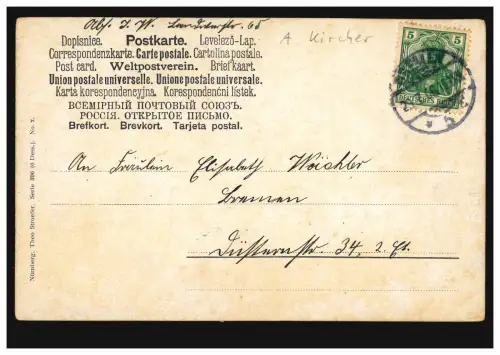 Abs. J. W. Landwehrstr. 65
A Kircher
Dopisnice. Postkarte. Levelező-Lap.
Correspondenzkarte. Carte postale. Cartolina postale.
Post card. Weltpostverein. Briefkaart.
Union postale universelle. Unione postale universale.
Karta korespondencyjna. Korespondenční lístek.
ВСЕМІРНЫЙ ПОЧТОВЫЙ СОЮЗЪ.
РОССІЯ. ОТКРЫТОЕ ПИСЬМО.
Brefkort. Brevkort. Tarjeta postal.
5 5
DEUTSCHES
An Fräulein Elisabeth Wöschler
Bremen
Düsternstr. 34, 2. Et.
Nürnberg, Theo Stroefer, Serie 396 (6 Dess.). No. 2.